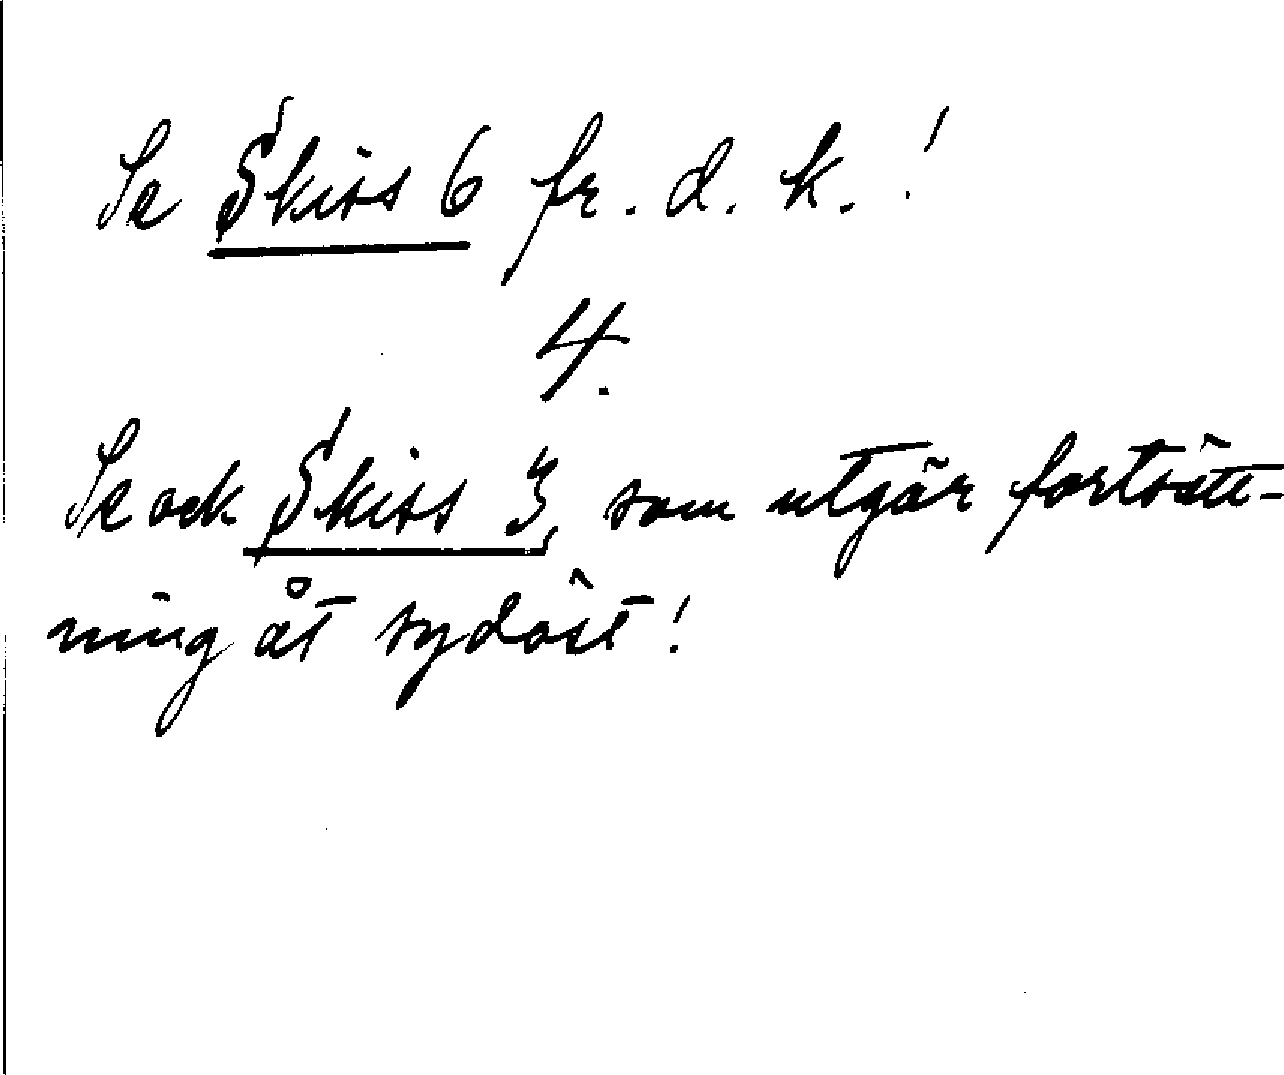 Se Skiss 6 fr. d. k.!
4.
Se ock Skiss 3, som utgör fortsätt-
ning åt sydöst!